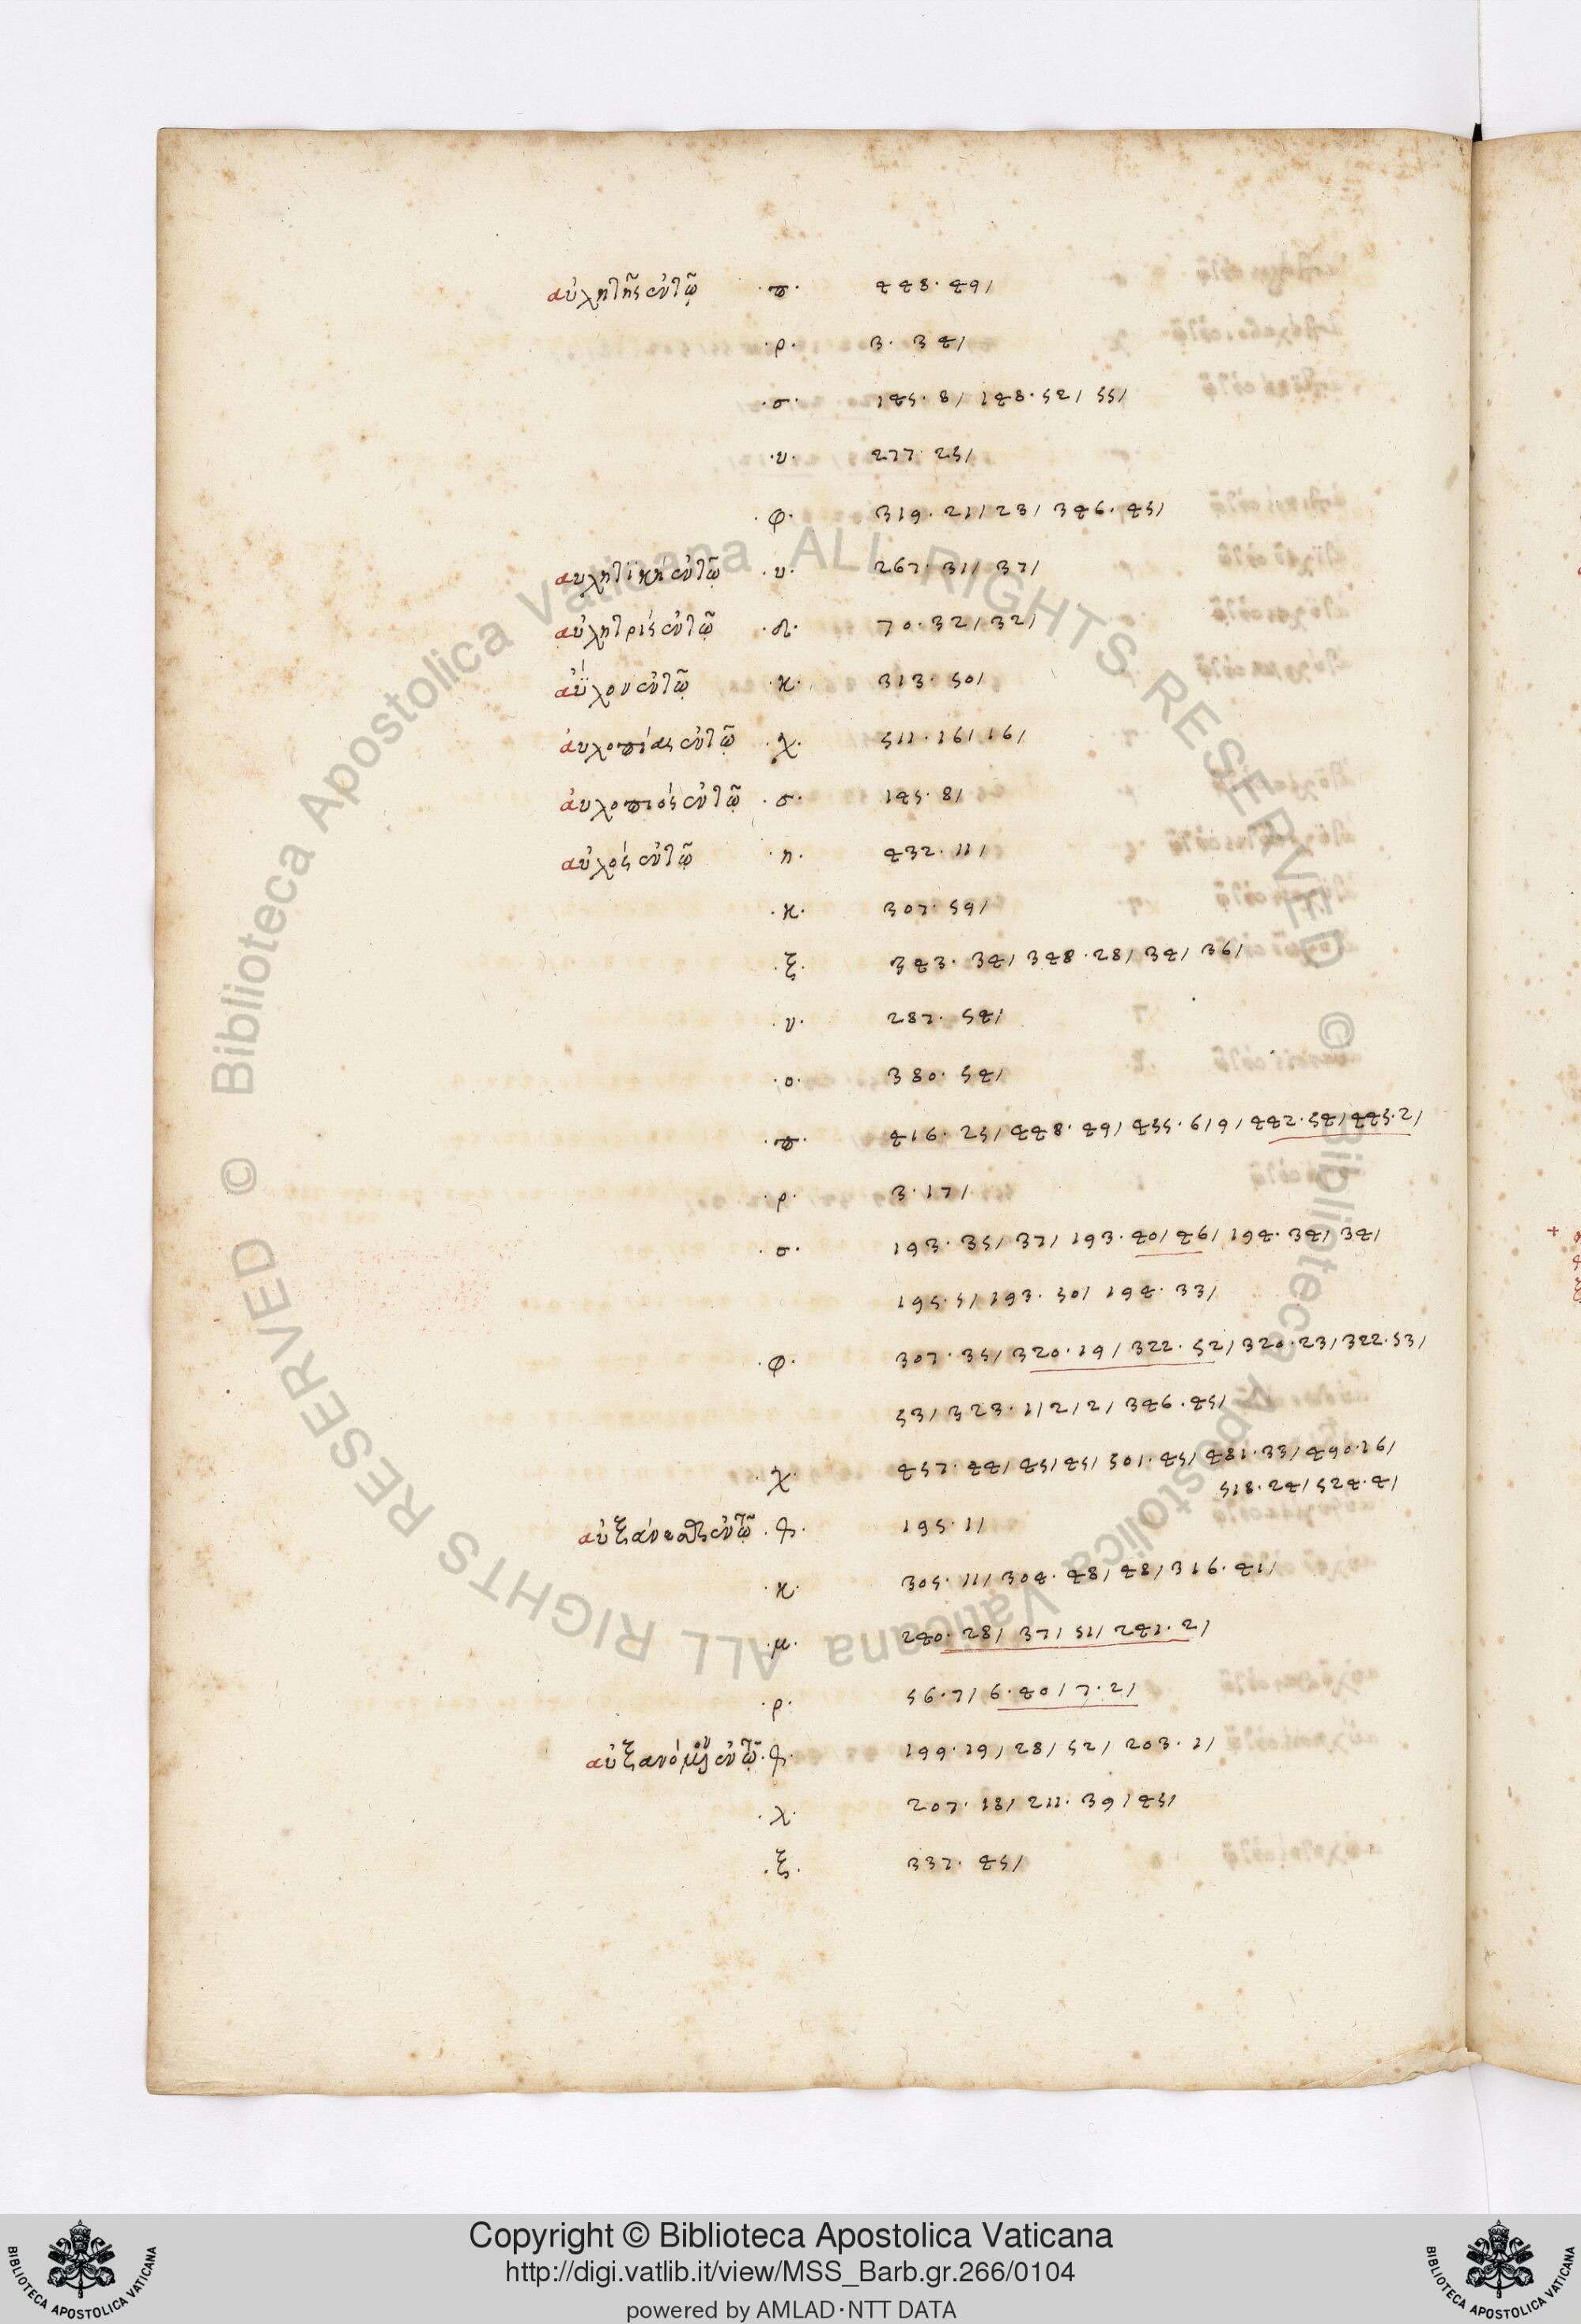 αὐλητῆς ἐν τῷ ·π· 448· 49/
·ρ· 3· 34/
·σ· 145· 8/ 148· 52/ 55/
·υ· 277· 25/
·φ· 319· 21/ 23/ 346· 45/
αυλητικὴ ἐν τῷ ·υ· 267· 31/ 37/
αὐλητρίς ἐν τῷ ·δ· 70· 32/ 32/
ἐν τῷ ·κ· 313· 50/
αυλοπίας ἐν τῷ ·χ· 511· 16/ 16/
αυλοπιός ἐν τῷ ·σ· 145· 8/
αὐλός ἐν τῷ ·η· 432· 11/
·κ· 307· 59/
·ξ· 343· 34/ 348· 28/ 34/ 36/
·ν· 287· 54/
·ο· 380· 54/
·π· 416· 25/ 448· 49/ 455· 6/ 9/ 442· 54/ 445· 2/
·ρ· 3· 17/
·σ· 193· 35/ 37/ 193· 40/ 46/ 194· 34/ 34/
195· 5/ 193· 50/ 194· 33/
·φ· 307· 35/ 320· 19/ 322· 52/ 320· 23/ 322· 53/
53/ 323· 1/ 2/ 2/ 346· 45/
·χ· 457· 44/ 45/ 45/ 501· 45/ 481· 33/ 490· 16/
518· 24/ 524· 4/
ἐν τῷ 195· 11/
·κ· 305· 11/ 304· 48/ 48/ 316· 41/
·μ· 240· 28/ 37/ 51/ 241· 2/
·ρ· 56· 7/ 6· 40/ 7· 2/
ἐν τῷ 199· 19/ 28/ 52/ 203· 1/
·λ· 207· 18/ 211· 39/ 45/
·ξ· 337· 45/
Biblioteca Apostolica Vaticana ALL RIGHTS RESERVED ©
Biblioteca Apostolica Vaticana ALL RIGHTS RESERVED ©
Copyright © Biblioteca Apostolica Vaticana
http://digi.vatlib.it/view/MSS_Barb.gr.266/0104
powered by AMLAD·NTT DATA
BIBLIOTECA APOSTOLICA VATICANA
BIBLIOTECA APOSTOLICA VATICANA